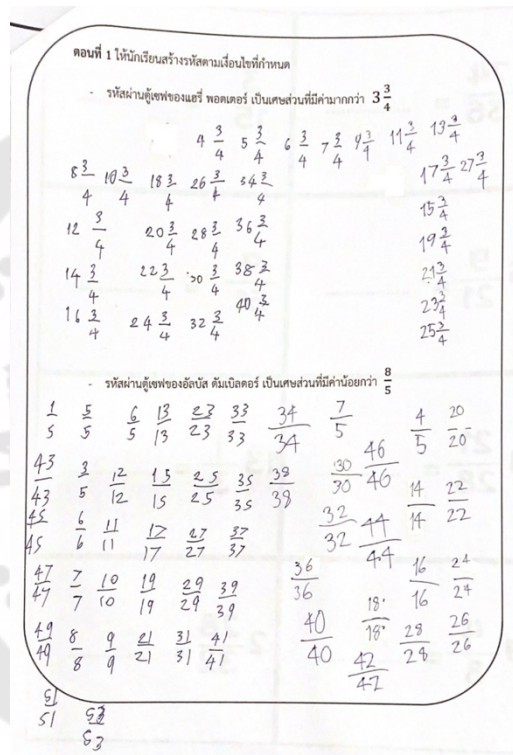 ตอนที่ 1 ให้นักเรียนสร้างรหัสตามเงื่อนไขที่กำหนด
- รหัสผ่านตู้เซฟของแฮรี่ พอตเตอร์ เป็นเศษส่วนที่มีค่ามากกว่า 3 3/4
4 3/4 5 3/4 6 3/4 7 3/4 9 3/4 11 3/4 13 3/4
8 3/4 10 3/4 18 3/4 26 3/4 34 3/4 17 3/4 27 3/4
12 3/4 20 3/4 28 3/4 36 3/4 15 3/4
19 3/4
14 3/4 22 3/4 30 3/4 38 3/4 21 3/4
16 3/4 24 3/4 32 3/4 40 3/4 23 3/4
25 3/4
- รหัสผ่านตู้เซฟของอัลบัส ดัมเบิลดอร์ เป็นเศษส่วนที่มีค่าน้อยกว่า 8/5
1/5 5/5 6/5 13/13 23/23 33/33 34/34 7/5 4/5 20/20
43/43 3/5 12/12 15/15 25/25 35/35 38/38 30/30 46/46 14/14 22/22
45/45 6/6 11/11 17/17 27/27 37/37 32/32 44/44
47/47 7/7 10/10 19/19 29/29 39/39 36/36 16/16 24/24
49/49 8/8 9/9 21/21 31/31 41/41 40/40 18/18 28/28 26/26
42/42
51/51 53/53